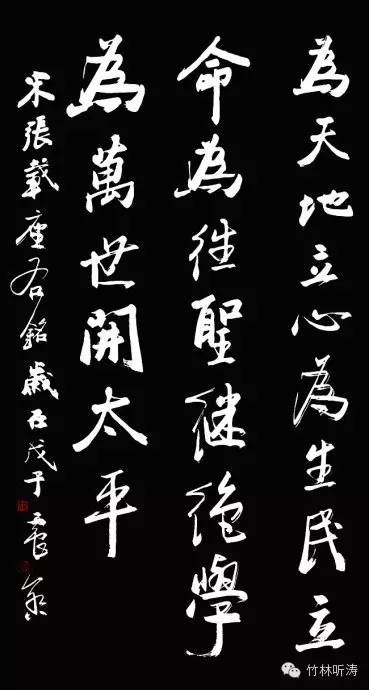 為天地立心為生民立
命為往聖继绝學
為萬世開太平
宋張載座右銘歲在戊子
竹林听涛